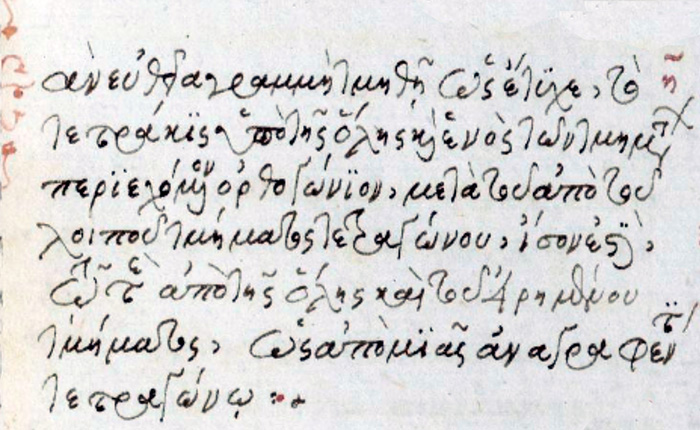 ἀὰν εὐθεῖα γραμμὴ τμηθῆ ὡς ἔτϋχε, τὸ η̄
τετράκϊς ὑπὸ τῆς ὅλης κ̀ ἑνὸς τῶν τμημτ
περϊεχόμενον ὀρθογώνϊον, μετὰ τοῦ ἀπὸ τοῦ
λοιποῦ τμήματος τετραγώνου, ἴσον ἐςῒ,
τῶ τε ἀπὸ τῆς ὅλης καὶ τοῦ εἰρημένου
τμήματος, ὡς ἀπὸ μϊᾶς ἀναγραφέντϊ
τετραγώνῳ :·